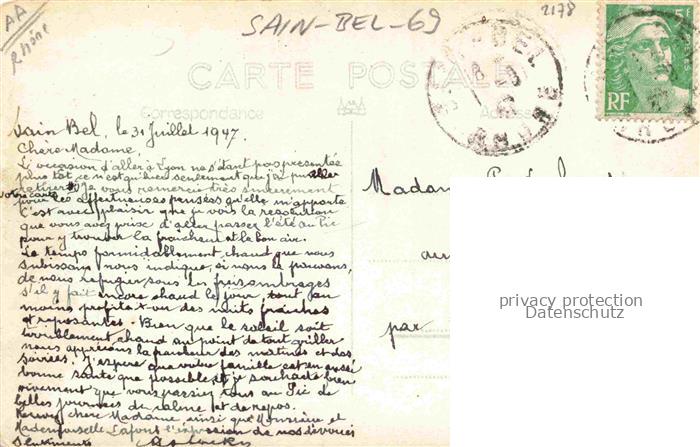 AA
Rhône
SAIN-BEL-69
2178
5F
RF
CARTE POSTALE
Correspondance
Adresse
RHONE
Sain Bel, le 31 Juillet 1947.
Chère Madame,
L'occasion d'aller à Lyon ne s'étant pas présentée
plus tôt ce n'est qu'hier seulement que j'ai pu aller
retirer je vous remercie très sincèrement
votre carte
pour les affectueuses pensées qu'elle m'apporte
C'est avec plaisir que je vois la résolution
que vous avez prise d'aller passer l'été au Pic
pour y trouver la fraîcheur et le bon air.
Le temps formidablement chaud que nous
subissons nous indique, si nous le pouvons,
de nous réfugier sous les frais ombrages
s'il y fait encore chaud le jour, tout au
moins profitez-vous des nuits fraîches
et reposantes. Bien que le soleil soit
terriblement chaud au point de tout griller
nous apprécions la fraîcheur des matinées et des
soirées. J'espère que votre famille est en aussi
bonne santé que possible, et je souhaite bien
vivement que vous passiez tous au Pic de
belles journées de calme et de repos.
Recevez chère Madame, ainsi que Monsieur et
Mademoiselle Lafont l'expression de nos dévoués
Sentiments
Madame
au
par
privacy protection
Datenschutz